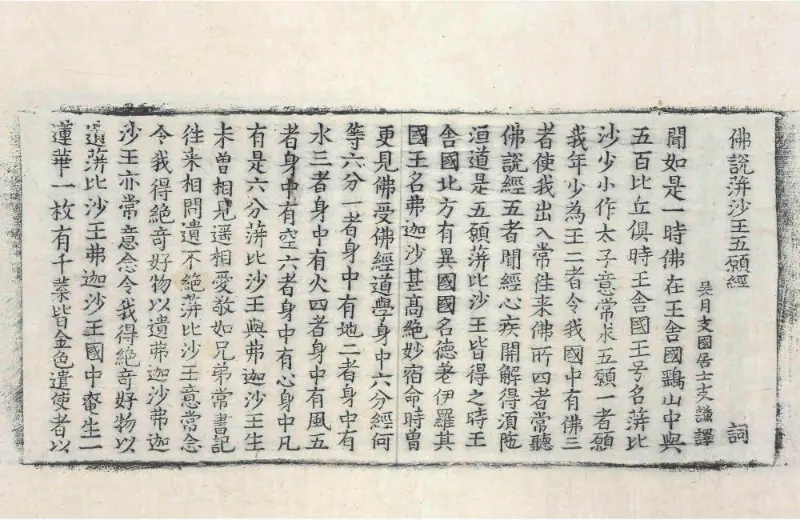 佛說蓱沙王五願經 詞
吳月支國居士支謙譯
聞如是一時佛在王舍國鷂山中與
五百比丘俱時王舍國王号名蓱比
沙少小作太子意常求五願一者願
我年少為王二者令我國中有佛三
者使我出入常往来佛所四者常聽
佛說經五者聞經心疾開解得湏陁
洹道是五願蓱比沙王皆得之時王
舍國北方有異國國名德差伊羅其
國王名弗迦沙甚高絶妙宿命時曽
更見佛受佛經道學身中六分經何
等六分一者身中有地二者身中有
水三者身中有火四者身中有風五
者身中有空六者身中有心身中凡
有是六分蓱比沙王與弗迦沙王生
未曽相見遥相愛敬如兄弟常書記
往来相問遺不絶蓱比沙王意常念
令我得絶奇好物以遺弗迦沙弗迦
沙王亦常意念令我得絶奇好物以
遺蓱比沙王弗迦沙王國中奄生一
蓮華一枚有千葉皆金色遣使者以